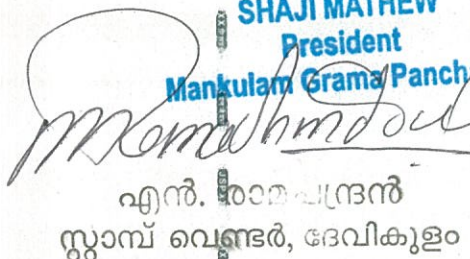 SHAJI MATHEW
President
Mankulam Grama Panch
എൻ. രാമചന്ദ്രൻ
സ്റ്റാമ്പ് വെണ്ടർ, ദേവികുളം